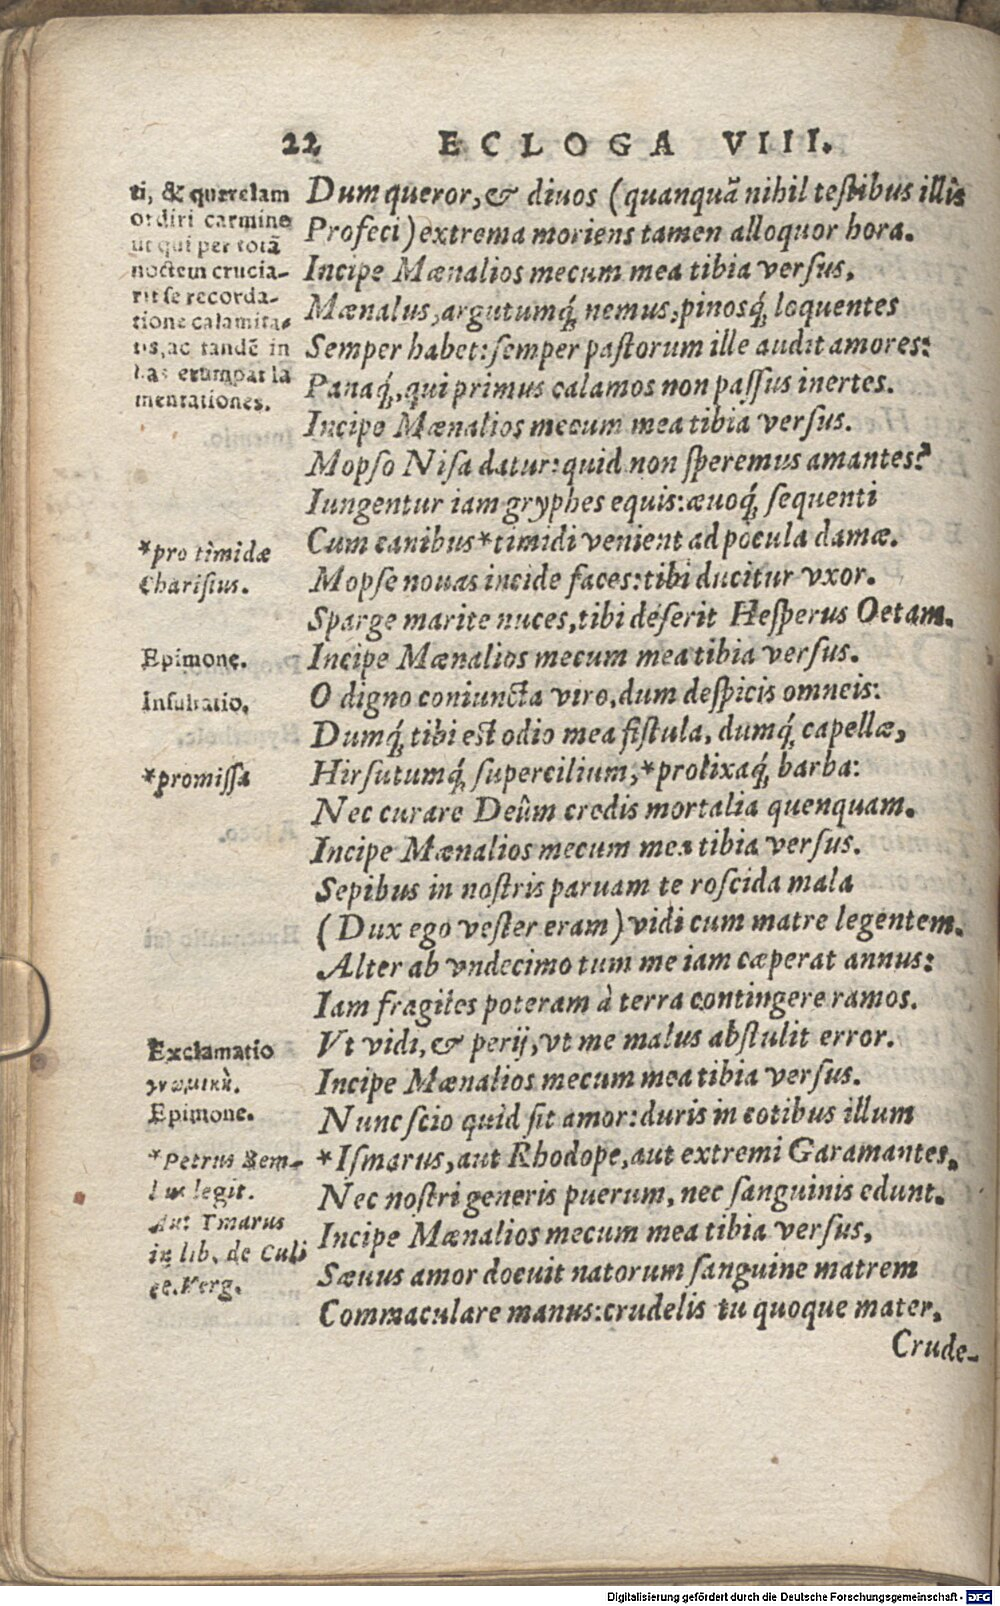 22 ECLOGA VIII.
ti, & querelam
ordiri carmine
ut qui per totā
noctem crucia-
rit se recorda-
tione calamita-
tis, ac tandē in
has erumpat la
mentationes.
Dum queror, & diuos (quanquā nihil testibus illis
Profeci) extrema moriens tamen alloquor hora.
Incipe Mænalios mecum mea tibia versus,
Mænalus, argutumq́; nemus, pinosq́; loquentes
Semper habet: semper pastorum ille audit amores:
Panaq́;, qui primus calamos non passus inertes.
Incipe Mænalios mecum mea tibia versus.
Mopso Nisa datur: quid non speremus amantes?
Iungentur iam gryphes equis: æuoq́; sequenti
*pro timidæ
Charisius.
Cum canibus *timidi venient ad pocula damæ.
Mopse nouas incide faces: tibi ducitur vxor.
Sparge marite nuces, tibi deserit Hesperus Oetam.
Epimone.
Incipe Mænalios mecum mea tibia versus.
Insultatio.
O digno coniuncta viro, dum despicis omneis:
Dumq́; tibi est odio mea fistula, dumq́; capellæ,
*promissa
Hirsutumq́; supercilium, *prolixaq́; barba:
Nec curare Deûm credis mortalia quenquam.
Incipe Mænalios mecum mea tibia versus.
Sepibus in nostris paruam te roscida mala
(Dux ego vester eram) vidi cum matre legentem.
Alter ab vndecimo tum me iam cæperat annus:
Iam fragiles poteram à terra contingere ramos.
Exclamatio
γνωμικὴ.
Vt vidi, & perij, vt me malus abstulit error.
Incipe Mænalios mecum mea tibia versus.
Epimone.
Nunc scio quid sit amor: duris in cotibus illum
*Petrus Bem-
bus legit.
Aut Tmarus
in lib. de Culi
ce. Verg.
*Ismarus, aut Rhodope, aut extremi Garamantes,
Nec nostri generis puerum, nec sanguinis edunt.
Incipe Mænalios mecum mea tibia versus,
Sæuus amor docuit natorum sanguine matrem
Commaculare manus: crudelis tu quoque mater.
Crude-
Digitalisierung gefördert durch die Deutsche Forschungsgemeinschaft - DFG